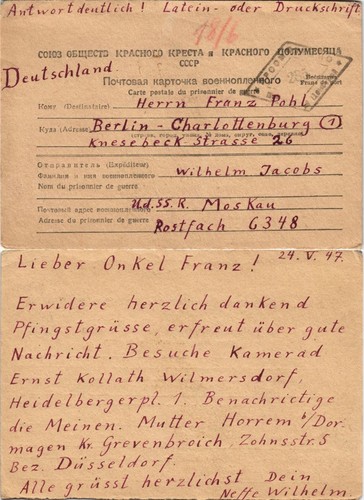 Antwort deutlich! Latein- oder Druckschrift
18/6
СОЮЗ ОБЩЕСТВ КРАСНОГО КРЕСТА и КРАСНОГО ПОЛУМЕСЯЦА
СССР
Deutschland
Почтовая карточка военнопленного
Carte postale du prisonnier de guerre
Бесплатно
Franc de port
Кому (Destinataire) Herrn Franz Pohl
Куда (Adresse) Berlin-Charlottenburg (1)
Knesebeck-Strasse 26
Отправитель (Expéditeur)
Фамилия и имя военнопленного Wilhelm Jacobs
Nom du prisonnier de guerre
Ud.SS.R. Moskau
Почтовый адрес военнопленного
Adresse du prisonnier de guerre Postfach 6348
Lieber Onkel Franz! 24. V. 47.
Erwidere herzlich dankend
Pfingstgrüsse, erfreut über gute
Nachricht. Besuche Kamerad
Ernst Kollath Wilmersdorf,
Heidelbergerpl. 1. Benachrichtige
die Meinen. Mutter Horrem b/Dor-
magen Kr. Grevenbroich, Zohnsstr. 5
Bez. Düsseldorf.
Alle grüsst herzlichst Dein
Neffe Wilhelm